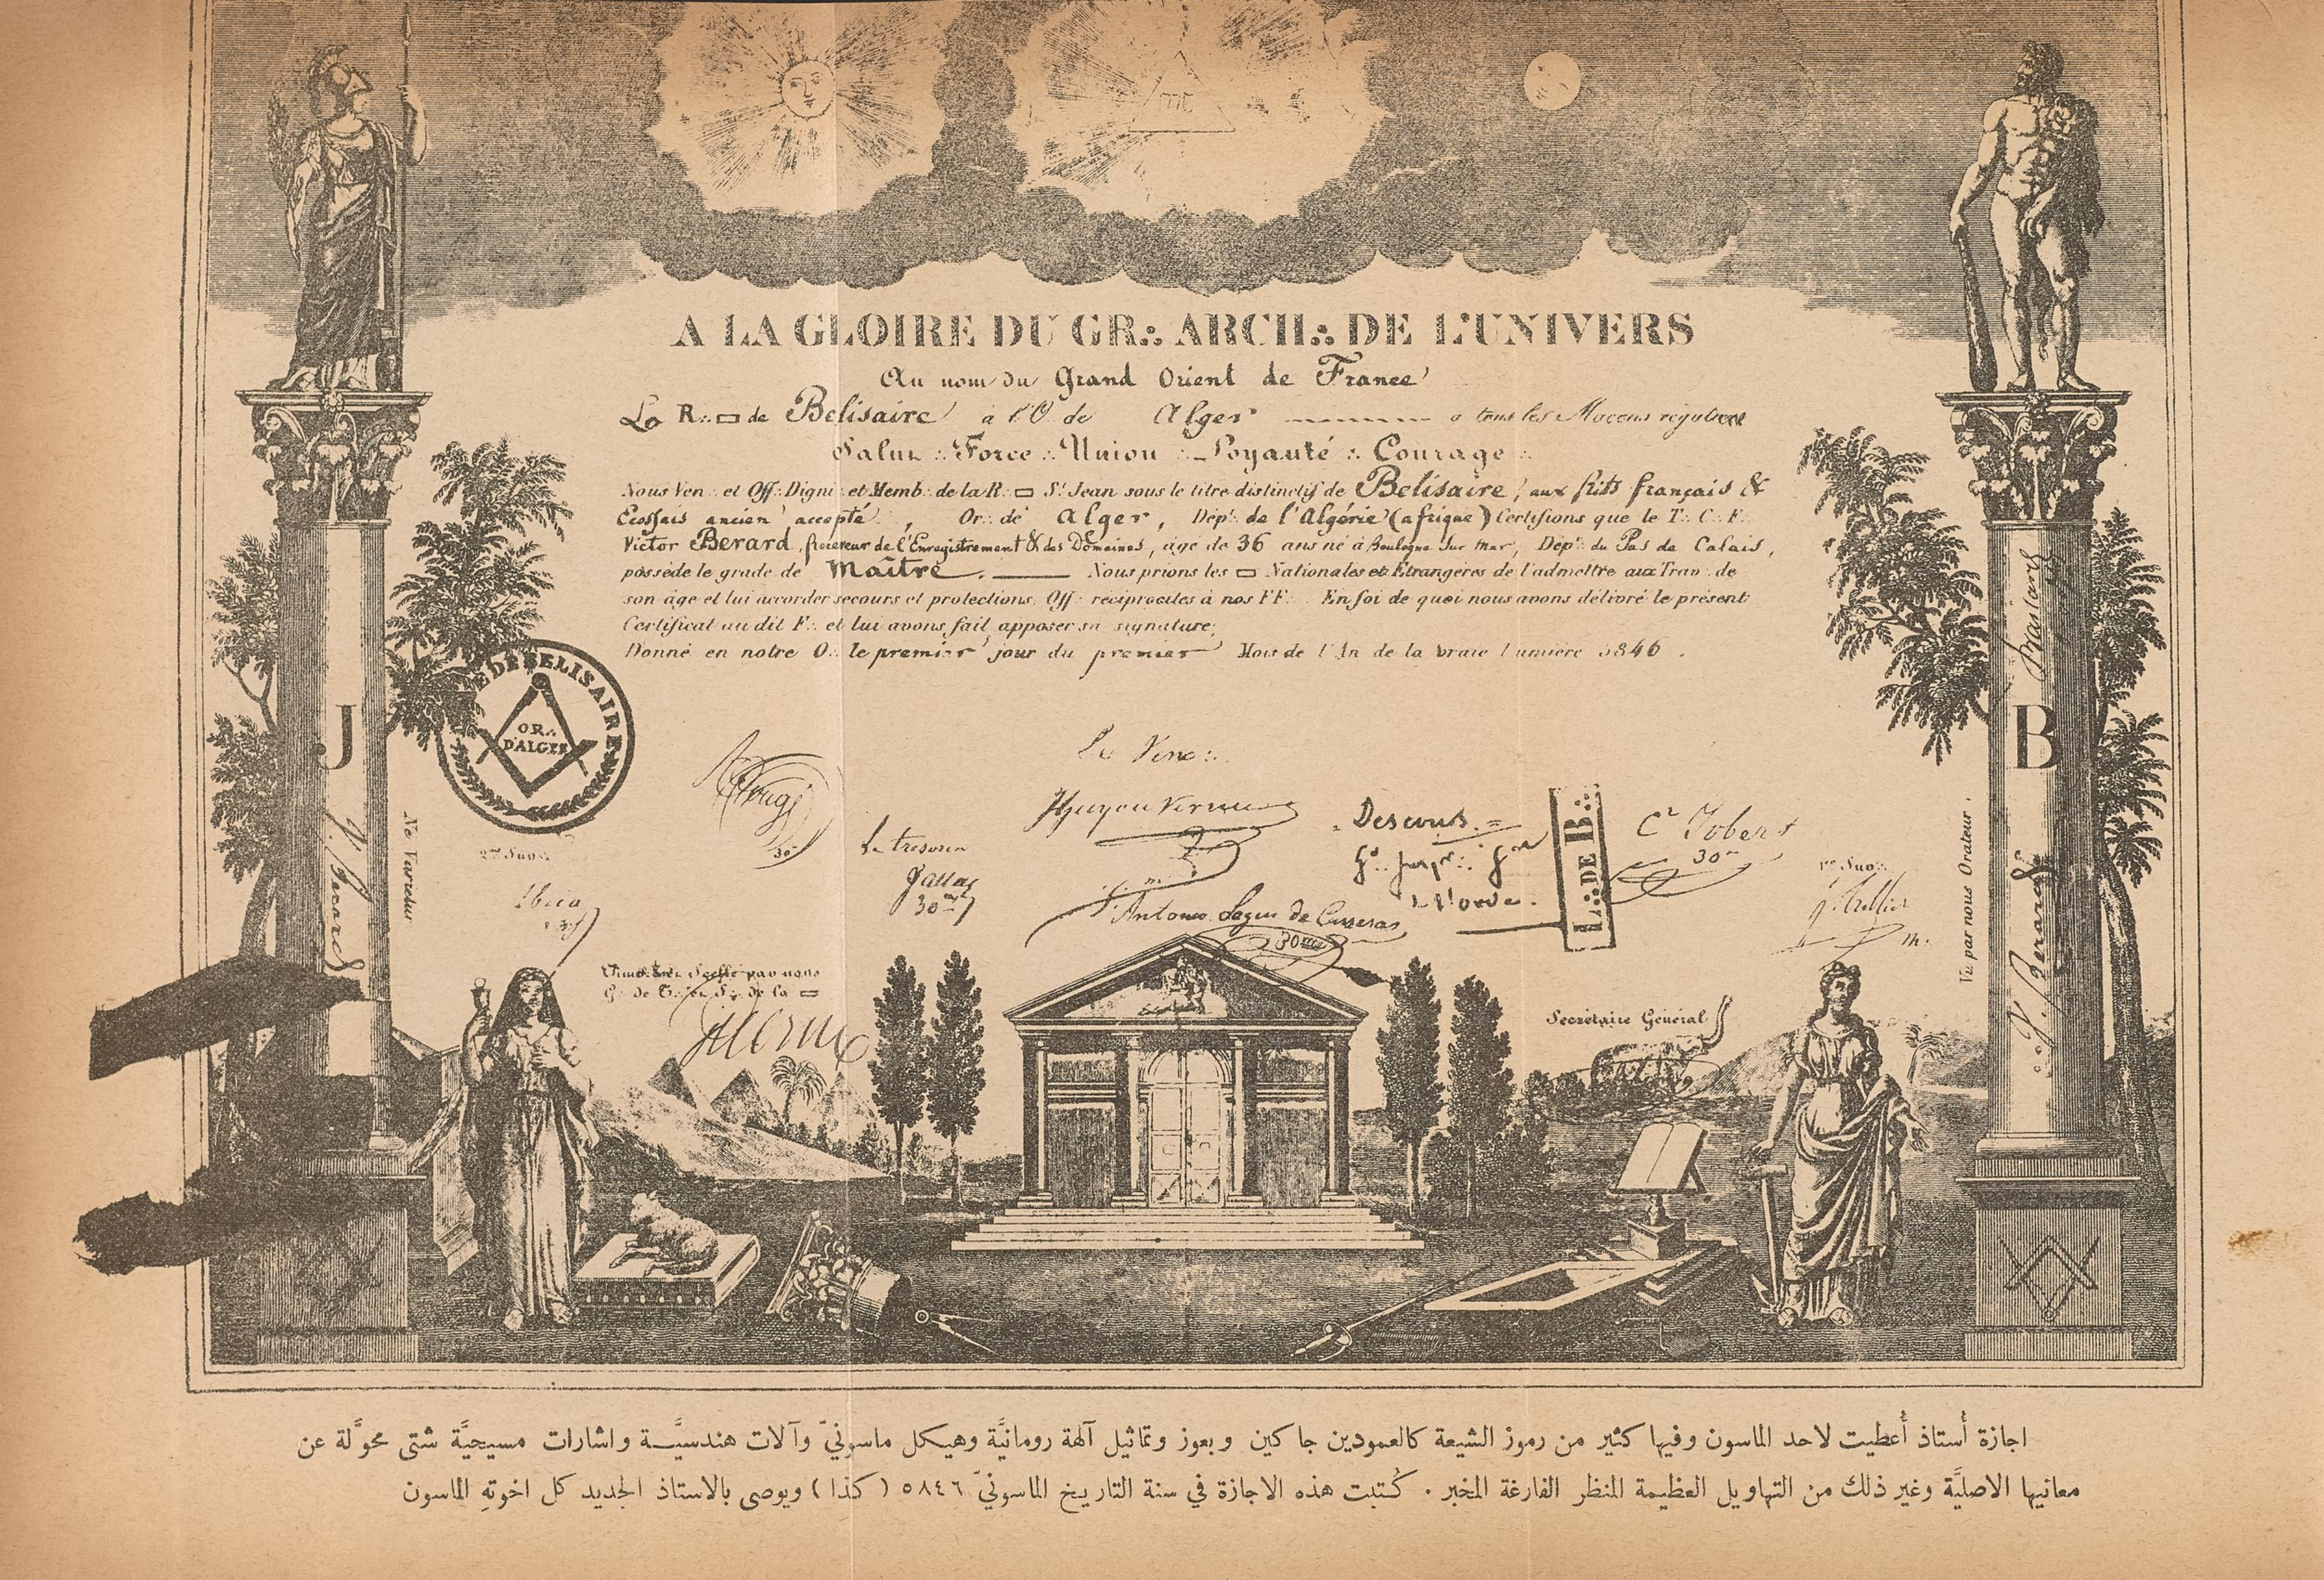 A LA GLOIRE DU GR∴ ARCH∴ DE L'UNIVERS
Au nom du Grand Orient de France
La R∴ ▭ de Belisaire à l'O. de Alger a tous les Macons réguliers
Salut ∴ Force ∴ Union ∴ Loyauté ∴ Courage ∴
Nous Ven∴ et Off∴ Dign∴ et Memb∴ de la R∴ ▭ St Jean sous le titre distinctif de Belisaire, aux rits français &
Ecossais ancien accepté, Or∴ de Alger, Dépt de l'Algérie (afrique) Certifions que le T∴ C∴ F∴
Victor Berard, Receveur de l'Enregistrement & des Domaines, âgé de 36 ans né à Boulogne sur mer, Dépt du Pas de Calais,
possède le grade de Maître. Nous prions les ▭ Nationales et Etrangères de l'admettre aux Trav∴ de
son âge et lui accorder secours et protections, Off∴ réciprocités à nos FF∴. En foi de quoi nous avons délivré le présent
Certificat au dit F∴ et lui avons fait apposer sa signature;
Donné en notre O∴ le premier jour du premier Mois de l'An de la vraie lumière 5846.
DE BELISAIRE
OR∴
D'ALGER
J
B
Ne Varietur
V. Berard
Le Vene∴
2me Surv∴
30e
Le tresorier
30me
Descous
L∴ DE B∴
Cl Jobert
30me
1er Surv∴
Vu par nous Orateur.
V. Berard
Antonio
30me
Timbré et Scellé par nous
G∴ de T∴ et S∴ de la ▭
Secrétaire Général
اجازة أستاذ أُعطيت لاحد الماسون وفيها كثير من رموز الشيعة كالعمودين جاكين وبعوز وتماثيل آلهة رومانيَّة وهيكل ماسونيّ وآلات هندسيَّـة واشارات مسيحيَّة شتى محوَّلة عن
معانيها الاصليَّة وغير ذلك من التهاويل العظيمة المنظر الفارغة المخبر . كُتبت هذه الاجازة في سنة التاريخ الماسونيّ ٥٨٤٦ ( كذا ) ويوصى بالاستاذ الجديد كل اخوتهِ الماسون